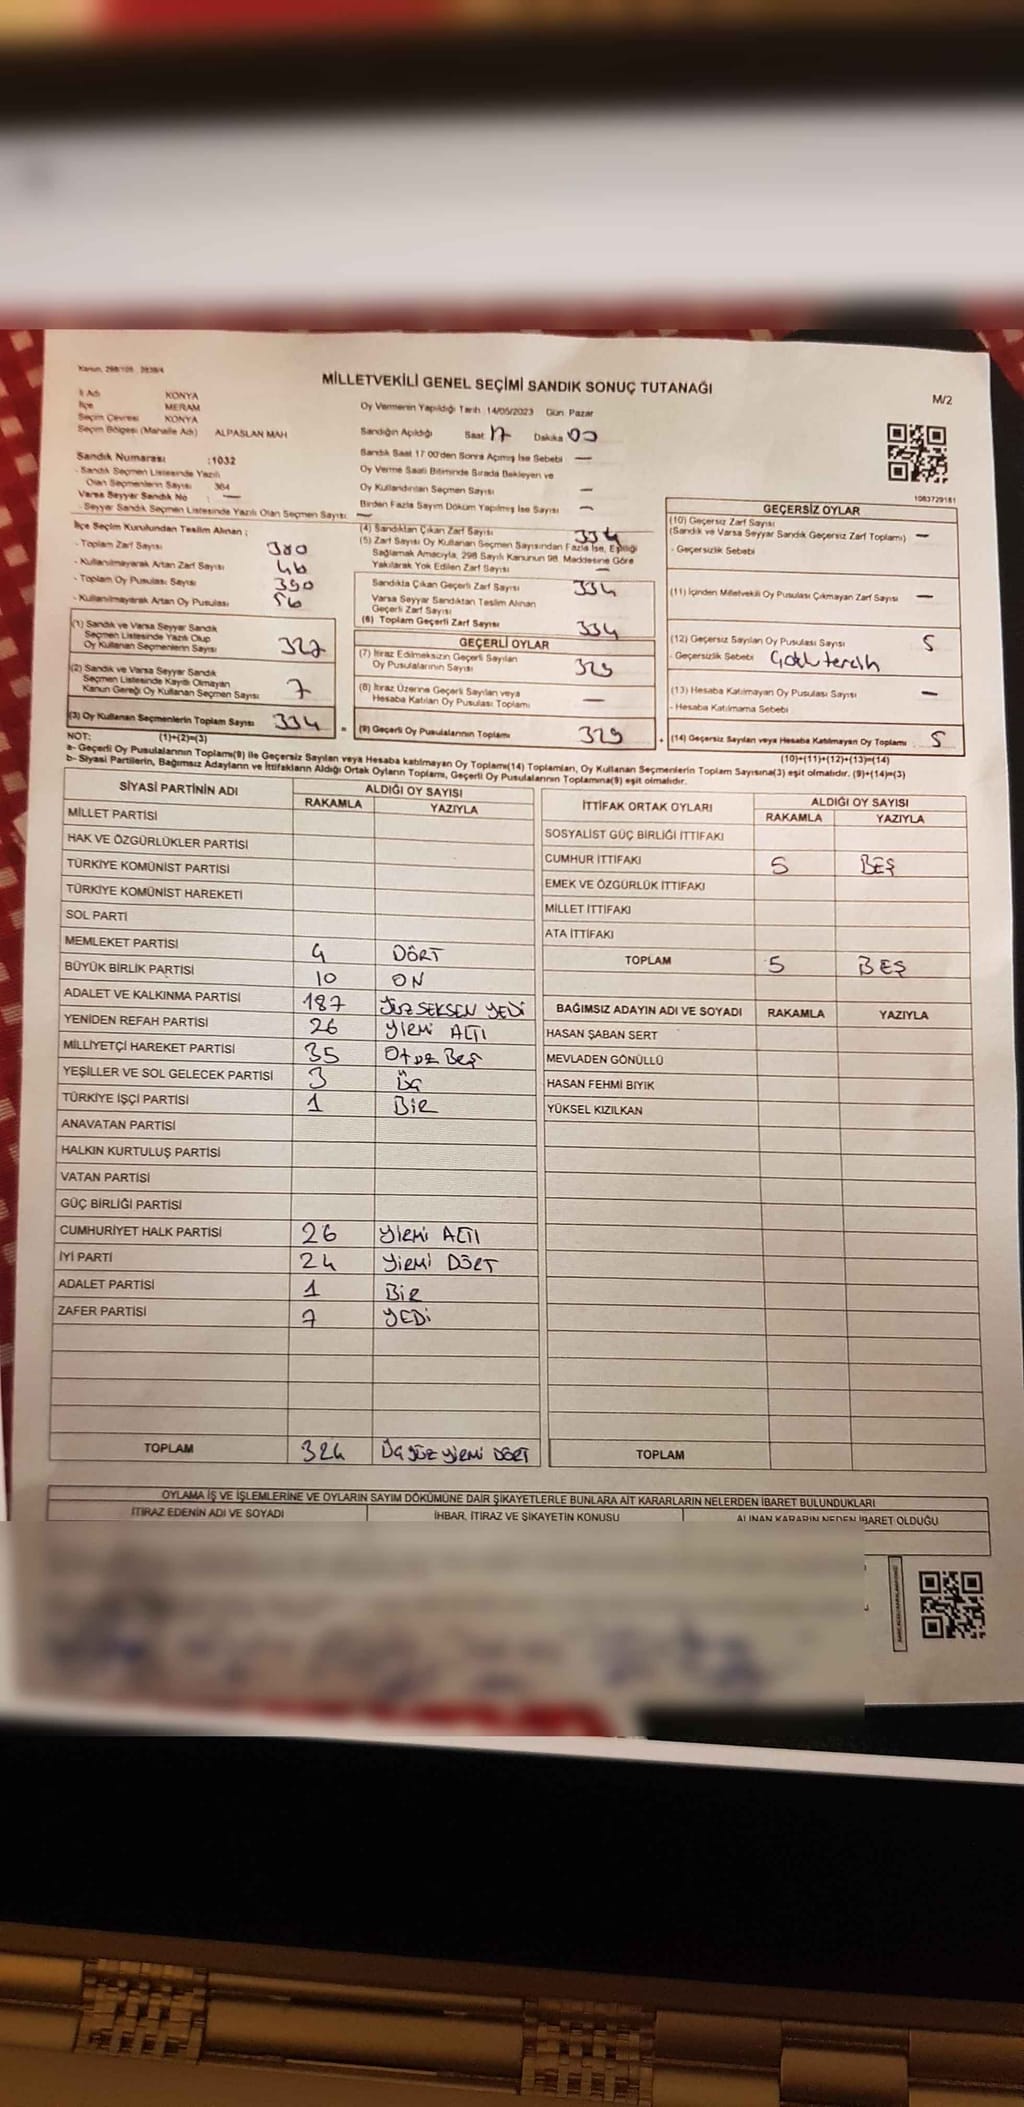 Kanun, 298/105 2839/4
MİLLETVEKİLİ GENEL SEÇİMİ SANDIK SONUÇ TUTANAĞI
M/2
İl Adı KONYA
İlçe MERAM
Seçim Çevresi KONYA
Seçim Bölgesi (Mahalle Adı) ALPASLAN MAH
Oy Vermenin Yapıldığı Tarih 14/05/2023 Gün Pazar
Sandığın Açıldığı Saat 17 Dakika 00
Sandık Numarası :1032
- Sandık Seçmen Listesinde Yazılı
Olan Seçmenlerin Sayısı 364
Varsa Seyyar Sandık No : —
- Seyyar Sandık Seçmen Listesinde Yazılı Olan Seçmen Sayısı —
Sandık Saat 17 00'den Sonra Açılmış İse Sebebi —
Oy Verme Saati Bitiminde Sırada Bekleyen ve
Oy Kullandırılan Seçmen Sayısı —
Birden Fazla Sayım Döküm Yapılmış İse Sayısı —
1083729181
İlçe Seçim Kurulundan Teslim Alınan ;
- Toplam Zarf Sayısı 380
- Kullanılmayarak Artan Zarf Sayısı 46
- Toplam Oy Pusulası Sayısı 390
- Kullanılmayarak Artan Oy Pusulası 56
(1) Sandık ve Varsa Seyyar Sandık
Seçmen Listesinde Yazılı Olup
Oy Kullanan Seçmenlerin Sayısı 327
(2) Sandık ve Varsa Seyyar Sandık
Seçmen Listesinde Kayıtlı Olmayan
Kanun Gereği Oy Kullanan Seçmen Sayısı 7
(3) Oy Kullanan Seçmenlerin Toplam Sayısı 334
(1)+(2)=(3)
(4) Sandıktan Çıkan Zarf Sayısı 334
(5) Zarf Sayısı Oy Kullanan Seçmen Sayısından Fazla İse, Eşitliği
Sağlamak Amacıyla, 298 Sayılı Kanunun 98. Maddesine Göre
Yakılarak Yok Edilen Zarf Sayısı —
Sandıkta Çıkan Geçerli Zarf Sayısı 334
Varsa Seyyar Sandıktan Teslim Alınan
Geçerli Zarf Sayısı
(6) Toplam Geçerli Zarf Sayısı 334
GEÇERLİ OYLAR
(7) İtiraz Edilmeksizin Geçerli Sayılan
Oy Pusulalarının Sayısı 329
(8) İtiraz Üzerine Geçerli Sayılan veya
Hesaba Katılan Oy Pusulası Toplamı —
= (9) Geçerli Oy Pusulalarının Toplamı 329
GEÇERSİZ OYLAR
(10) Geçersiz Zarf Sayısı
(Sandık ve Varsa Seyyar Sandık Geçersiz Zarf Toplamı) —
- Geçersizlik Sebebi
(11) İçinden Milletvekili Oy Pusulası Çıkmayan Zarf Sayısı —
(12) Geçersiz Sayılan Oy Pusulası Sayısı 5
- Geçersizlik Sebebi Çoklu tercih
(13) Hesaba Katılmayan Oy Pusulası Sayısı —
- Hesaba Katılmama Sebebi
+ (14) Geçersiz Sayılan veya Hesaba Katılmayan Oy Toplamı 5
(10)+(11)+(12)+(13)=(14)
NOT:
a- Geçerli Oy Pusulalarının Toplamı(9) ile Geçersiz Sayılan veya Hesaba katılmayan Oy Toplamı(14) Toplamları, Oy Kullanan Seçmenlerin Toplam Sayısına(3) eşit olmalıdır. (9)+(14)=(3)
b- Siyasi Partilerin, Bağımsız Adayların ve İttifakların Aldığı Ortak Oyların Toplamı, Geçerli Oy Pusulalarının Toplamına(9) eşit olmalıdır.
SİYASİ PARTİNİN ADI ALDIĞI OY SAYISI
RAKAMLA YAZIYLA
MİLLET PARTİSİ
HAK VE ÖZGÜRLÜKLER PARTİSİ
TÜRKİYE KOMÜNİST PARTİSİ
TÜRKİYE KOMÜNİST HAREKETİ
SOL PARTİ
MEMLEKET PARTİSİ 4 DÖRT
BÜYÜK BİRLİK PARTİSİ 10 ON
ADALET VE KALKINMA PARTİSİ 187 YÜZ SEKSEN YEDİ
YENİDEN REFAH PARTİSİ 26 YİRMİ ALTI
MİLLİYETÇİ HAREKET PARTİSİ 35 Otuz Beş
YEŞİLLER VE SOL GELECEK PARTİSİ 3 ÜÇ
TÜRKİYE İŞÇİ PARTİSİ 1 BİR
ANAVATAN PARTİSİ
HALKIN KURTULUŞ PARTİSİ
VATAN PARTİSİ
GÜÇ BİRLİĞİ PARTİSİ
CUMHURİYET HALK PARTİSİ 26 YİRMİ ALTI
İYİ PARTİ 24 YİRMİ DÖRT
ADALET PARTİSİ 1 BİR
ZAFER PARTİSİ 7 YEDİ
TOPLAM 324 ÜÇ YÜZ YİRMİ DÖRT
İTTİFAK ORTAK OYLARI ALDIĞI OY SAYISI
RAKAMLA YAZIYLA
SOSYALİST GÜÇ BİRLİĞİ İTTİFAKI
CUMHUR İTTİFAKI 5 BEŞ
EMEK VE ÖZGÜRLÜK İTTİFAKI
MİLLET İTTİFAKI
ATA İTTİFAKI
TOPLAM 5 BEŞ
BAĞIMSIZ ADAYIN ADI VE SOYADI RAKAMLA YAZIYLA
HASAN ŞABAN SERT
MEVLADEN GÖNÜLLÜ
HASAN FEHMİ BIYIK
YÜKSEL KIZILKAN
TOPLAM
OYLAMA İŞ VE İŞLEMLERİNE VE OYLARIN SAYIM DÖKÜMÜNE DAİR ŞİKAYETLERLE BUNLARA AİT KARARLARIN NELERDEN İBARET BULUNDUKLARI
İTİRAZ EDENİN ADI VE SOYADI İHBAR, İTİRAZ VE ŞİKAYETİN KONUSU ALINAN KARARIN NEDEN İBARET OLDUĞU